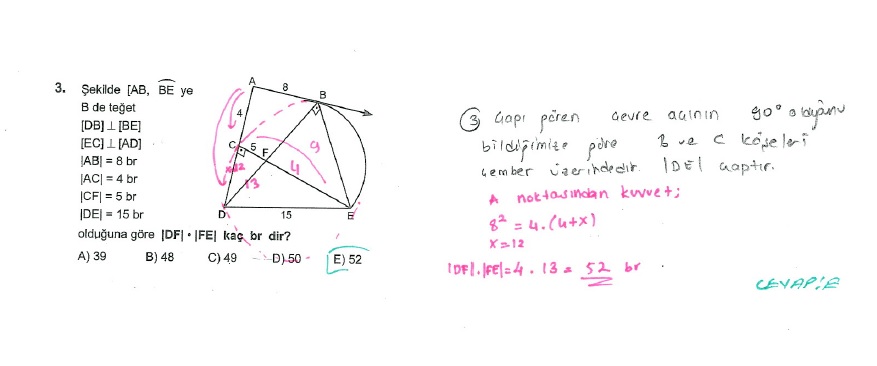 3. Şekilde [AB, BE ye
B de teğet
[DB] ⊥ [BE]
[EC] ⊥ [AD]
|AB| = 8 br
|AC| = 4 br
|CF| = 5 br
|DE| = 15 br
olduğuna göre |DF| • |FE| kaç br dir?
A) 39 B) 48 C) 49 D) 50 E) 52
A
8
B
4
C
5
F
9
4
x=12
13
D
15
E
③ Çapı gören çevre açının 90° olduğunu
bildiğimize göre B ve C köşeleri
çember üzerindedir. |DE| çaptır.
A noktasından kuvvet;
8² = 4.(4+x)
x=12
|DF|.|FE|=4.13=52 br
CEVAP:E